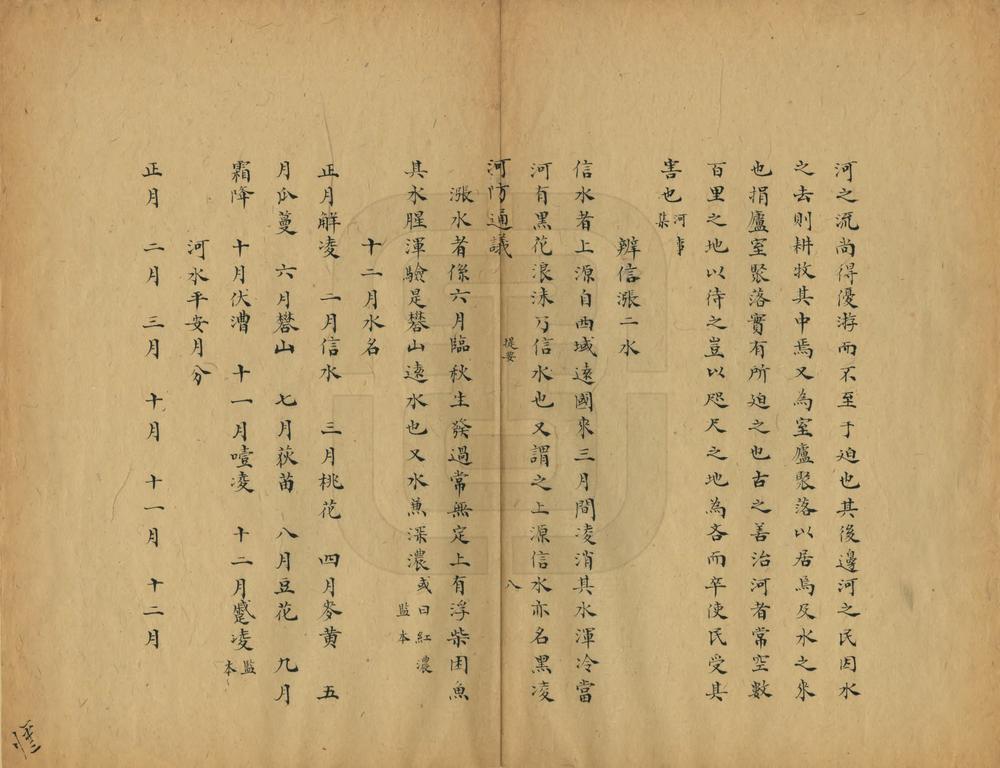 河之流尚得優游而不至于迫也其後邊河之民因水
之去則耕牧其中焉又為室廬聚落以居焉及水之來
也捐廬室聚落實有所迫之也古之善治河者常空數
百里之地以待之豈以咫尺之地為吝而卒使民受其
害也河事集
辨信漲二水
信水者上源自西域遠國來三月間凌消其水渾冷當
河有黑花浪沫乃信水也又謂之上源信水亦名黑凌
河防通議 提要 八
漲水者係六月臨秋生發過常無定上有浮柴困魚
其水腥渾驗是礬山遠水也又水䰞深濃或曰紅濃監本
十二月水名
正月解凌 二月信水 三月桃花 四月麥黄 五
月瓜蔓 六月礬山 七月荻苗 八月豆花 九月
霜降 十月伏漕 十一月噎凌 十二月蹙凌監本
河水平安月分
正月 二月 三月 十月 十一月 十二月